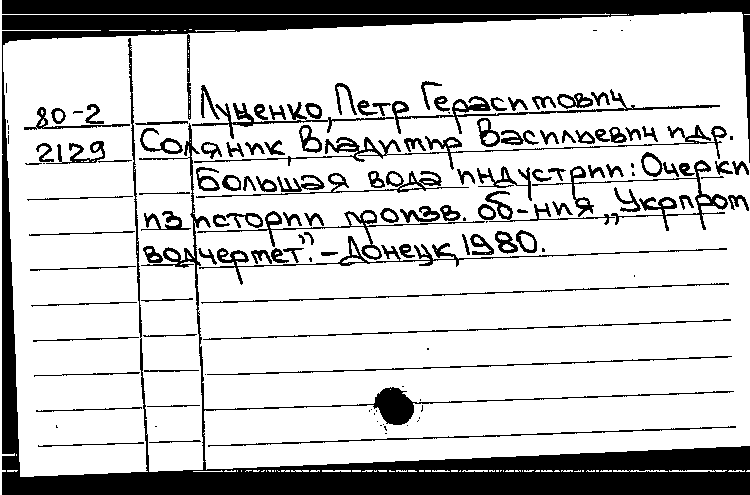 80-2 Луценко, Петр Герасимович.
2129 Соляник, Владимир Васильевич и др.
Большая вода индустрии: Очерки
из истории произв. об-ния „Укрпром
водчермет". – Донецк, 1980.